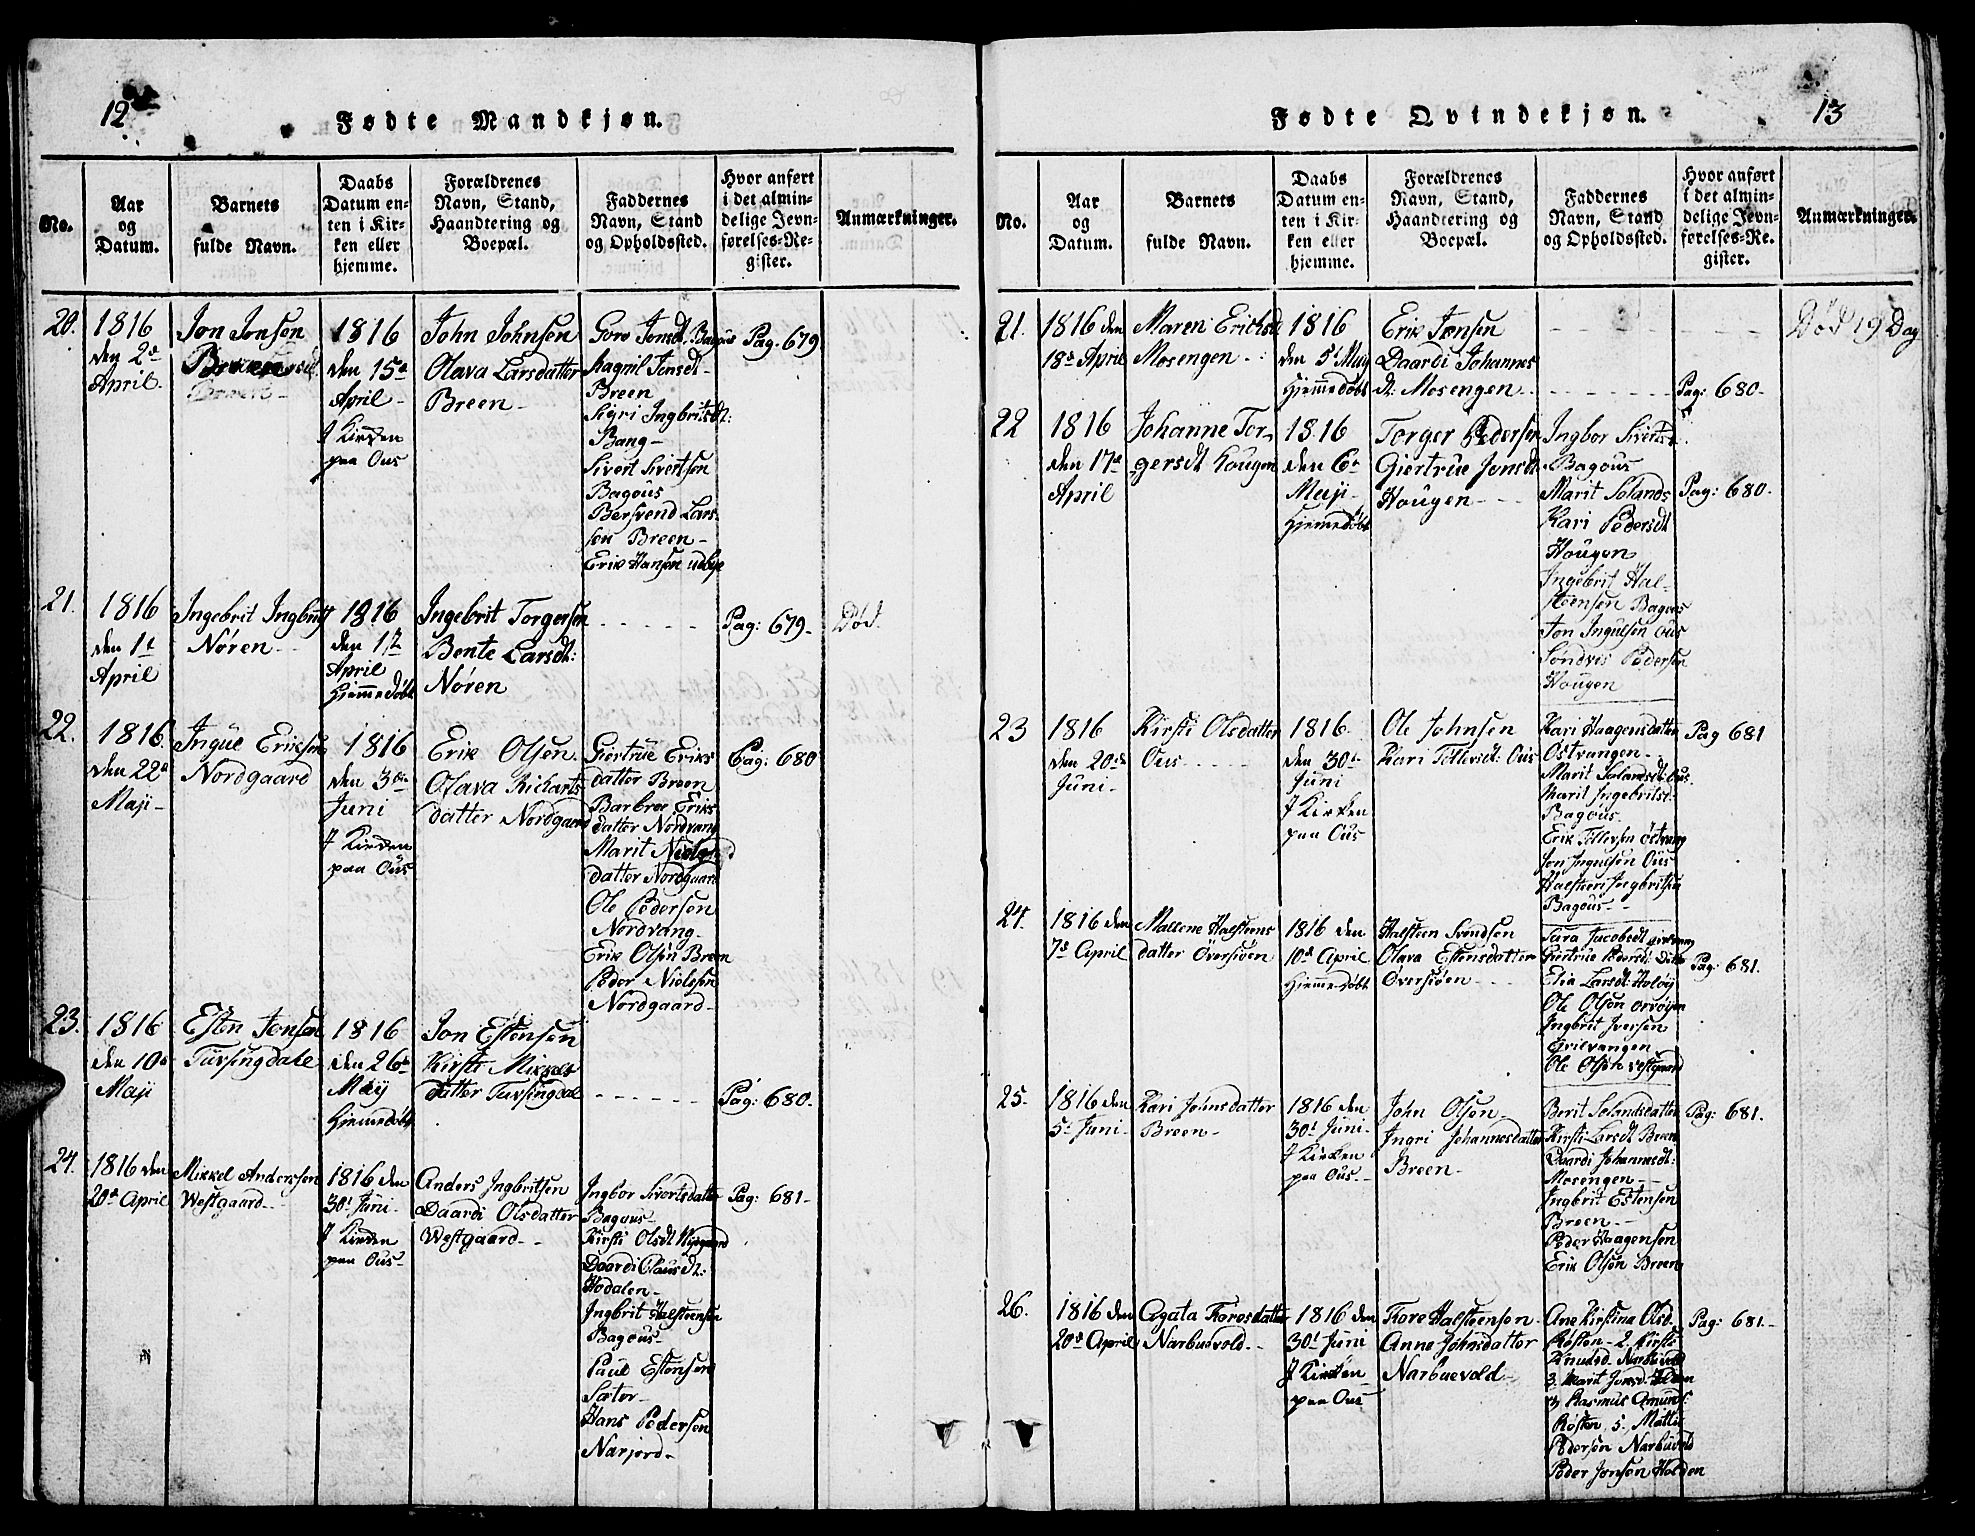 12
Fødte Mandkjøn.
No.
Aar
og
Datum.
Barnets
fulde Navn.
Daabs
Datum en-
ten i Kir-
ken eller
hjemme.
Forældrenes
Navn, Stand,
Haandtering og
Boepæl.
Faddernes
Navn, Stand
og Opholdssted.
Hvor anført
i det almin-
delige Jevn-
førelses-Re-
gister.
Anmærkninger.
20.
1816
den 2de
April
Jon Jonsen
Breen
1816
den 15de
April
J Kirken
paa Ous
John Johnsen
Olava Larsdatter
Breen
Goro Jonsdt. Bagous
Ragnil Jonsdt
Breen
Sigri Ingbritsdt:
Bang
Sivert Sivertsen
Bagous
Bersvend Lars-
sen Breen
Erik Hansen udbye
Pag. 679
21.
1816
den 1t
April
Ingebrit Ingbritt
Nøren
1816
den 17
April
Hiemmedøbt
Ingebrit Torgersen
Bente Larsdt:
Nøren
Pag: 679.
Død.
22.
1816
den 22d
Maji
Ingul Eriksen
Nordgaard
1816
den 3die
Juni
J Kirken
paa Ous
Erik Olsen
Olava Richarts
datter Nordgaard
Giertrue Eriks
datter Breen
Barbroe Eriks
datter Nordvang
Marit Niels
datter Nordgaard
Ole Pedersen
Nordvang
Erik Olsen Breen
Peder Nielssen
Nordgaard
Pag: 680
23.
1816
den 10de
Maji
Esten Jonsen
Tufsingdale
1816
den 26de
May
Hiemmedøbt
Jon Estensen
Kirsti Mikkels
datter Tufsingdal
Pag: 680.
24.
1816 den
20de April
Mikkel Anderssen
Westgaard
1816 den
30t Juni
J Kirken
paa Ous
Anders Ingbritsen
Daardi Olsdatter
Westgaard
Ingbor Sivertsdatter
Bagous
Kirsti Olsdt Nygaard
Daardi Olausdt:
Hodalen
Ingbrit Halsteensen
Bagous
Paul Estensen
Sæter
Hans Pedersen
Narjord
Pag: 681
13
Fødte Qvindekjøn.
No.
Aar
og
Datum.
Barnets
fulde Navn.
Daabs
Datum en-
ten i Kir-
ken eller
hjemme.
Forældrenes
Navn, Stand,
Haandtering og
Boepæl.
Faddernes
Navn, Stand
og Opholdssted.
Hvor anført
i det almin-
delige Jevn-
førelses-Re-
gister.
Anmærkninger.
21.
1816 den
18de April
Maren Ericksd
Mosengen
1816
den 5t Maij
Hjemmedøbt
Erik Jonsen
Daardi Johannes
dt: Mosengen
Pag: 680
Død 19 Dag
22
1816
den 17de
April
Johanne Tor-
gersdt Hougen
1816
den 6te
Maji
Hjemmedøbt
Torger Pedersen
Giertrue Jonsdt.
Hougen
Ingbor Sivertsd
Bagous
Marit Solands
Kari Pedersdt
Hougen
Ingebrit Hal-
steensen Bagous
Jon Ingulsen Ous
Søndvis Pedersen
Hougen
Pag: 680.
23
1816
den 20de
Juni
Kirsti Olsdatter
Ous
1816
den 30t
Juni
J Kirken
paa Ous
Ole Johnsen
Kari Tollevsdt: Ous
Kari Haagensdatter
Østvangen
Marit Solandsdt: Ous
Marit Ingebritsd:
Bagous
Erik Tollevsen Østvang
Jon Ingulsen Ous
Halsteen Ingbritsen
Bagous
Pag 681
24.
1816 den
7de April
Mallene Halsteens
datter Øversiøen
1816 den
10de April
Hjemmedøbt
Halsteen Svendsen
Olava Estensdatter
Øversiøen
Sara Jacobsdt
Giertrue Pedersdt Ditto
Elie Larsdt: Holøy
Ole Olsen
Ingbrit Iversen
Ole Olsen vestgaard
Pag: 681.
25.
1816 den
5t Juni
Kari Johnsdatter
Breen
1816 den
30t Juni
J Kirken
paa Ous
John Olsen
Ingri Johannesdatter
Breen
Berit Solandsdatter
Kirsti Larsdt Breen
Daardi Johannesdt:
Mosengen
Ingbrit Estensen
Breen
Peder Haagensen
Erik Olsen Breen
Pag: 681.
26.
1816 den
20de April
Agata Toresdatter
Narbuevold
1816 den
30t Juni
J Kirken
paa Ous
Tore Halsteensen
Anne Johnsdatter
Narbuevold
Ane Kirstina Olsd.
Røsten 2 Kirsti
Knudsd. Narbuvold
3. Marit Jonsd. Holden
4 Rasmus Amunds:
Røsten 5. Mattis
Pedersen Narbuvold
Peder Jonsen Holden
Pag: 681.